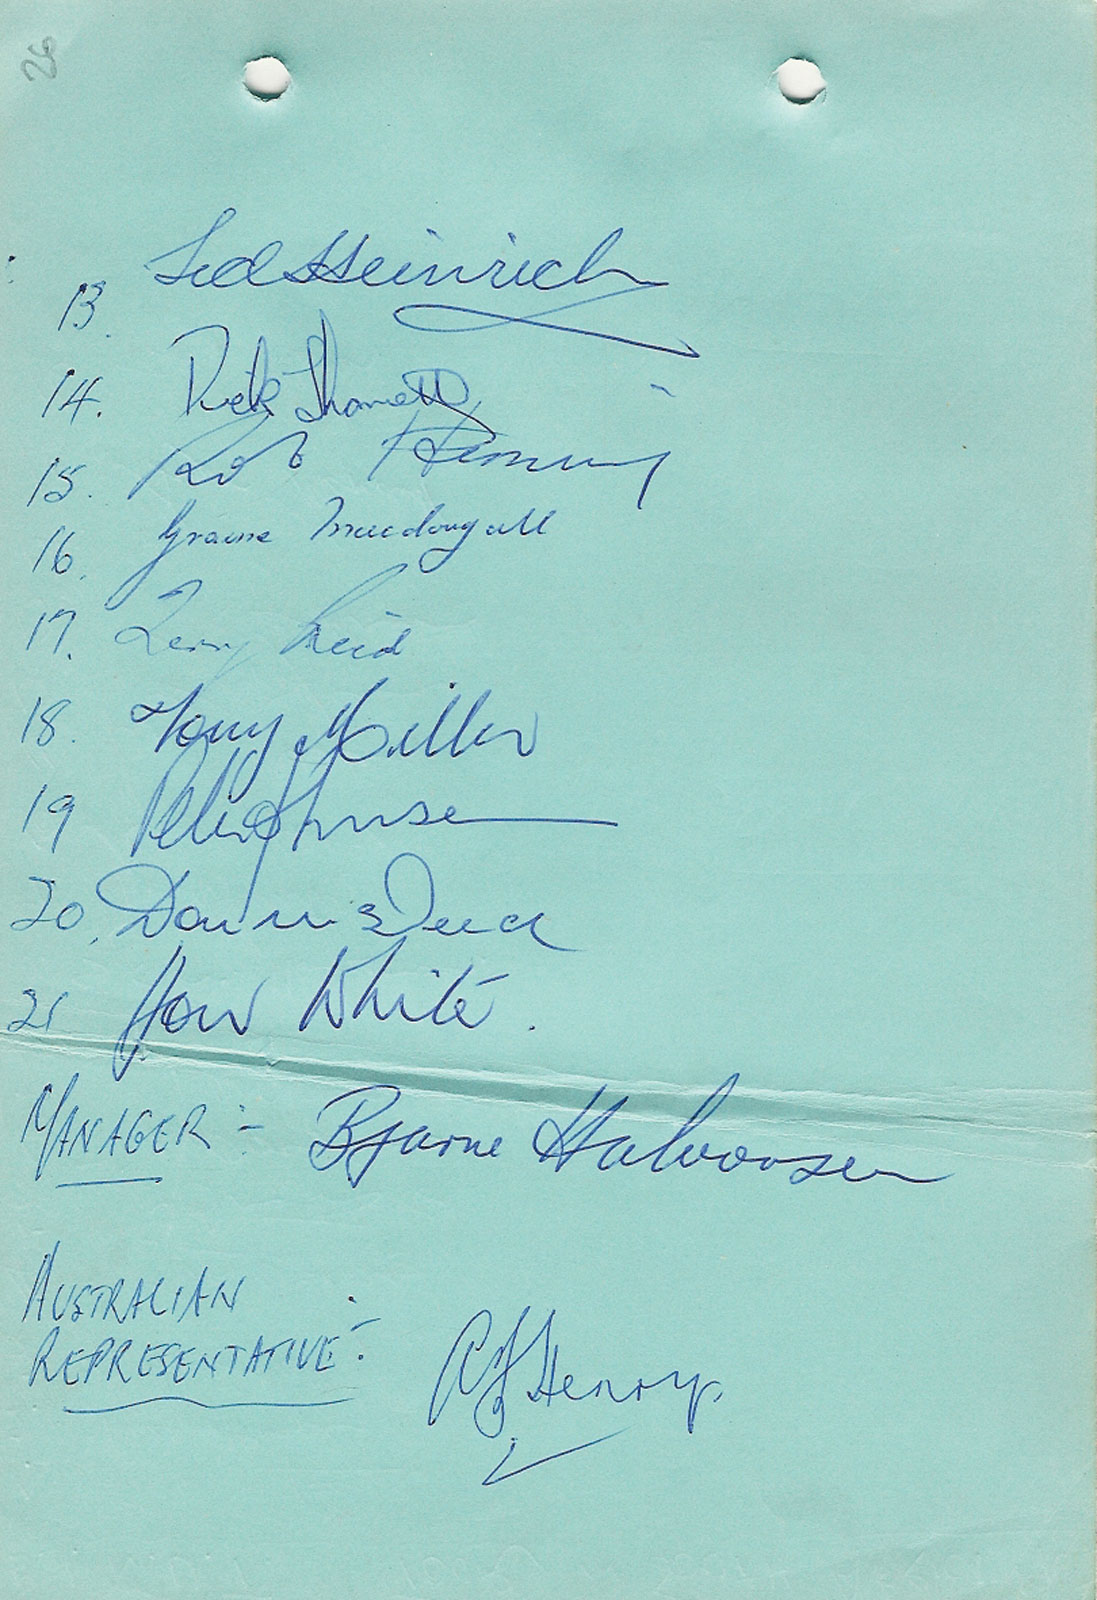 26
13. Ted Heinrich
14. Dick Thornett
15. Rob Heming
16. Graeme Macdougall
17. Terry Reid
18. Tony Miller
19 Peter Johnson
20.
21 Jon White.
MANAGER:- Bjarne Halvorsen
AUSTRALIAN
REPRESENTATIVE:- Henry